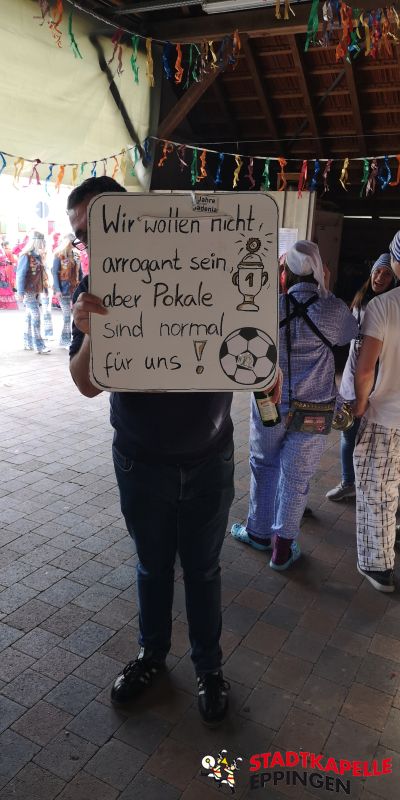 Jahre
Badenia
Wir wollen nicht
arrogant sein,
aber Pokale
1
sind normal
für uns !
STADTKAPELLE
EPPINGEN